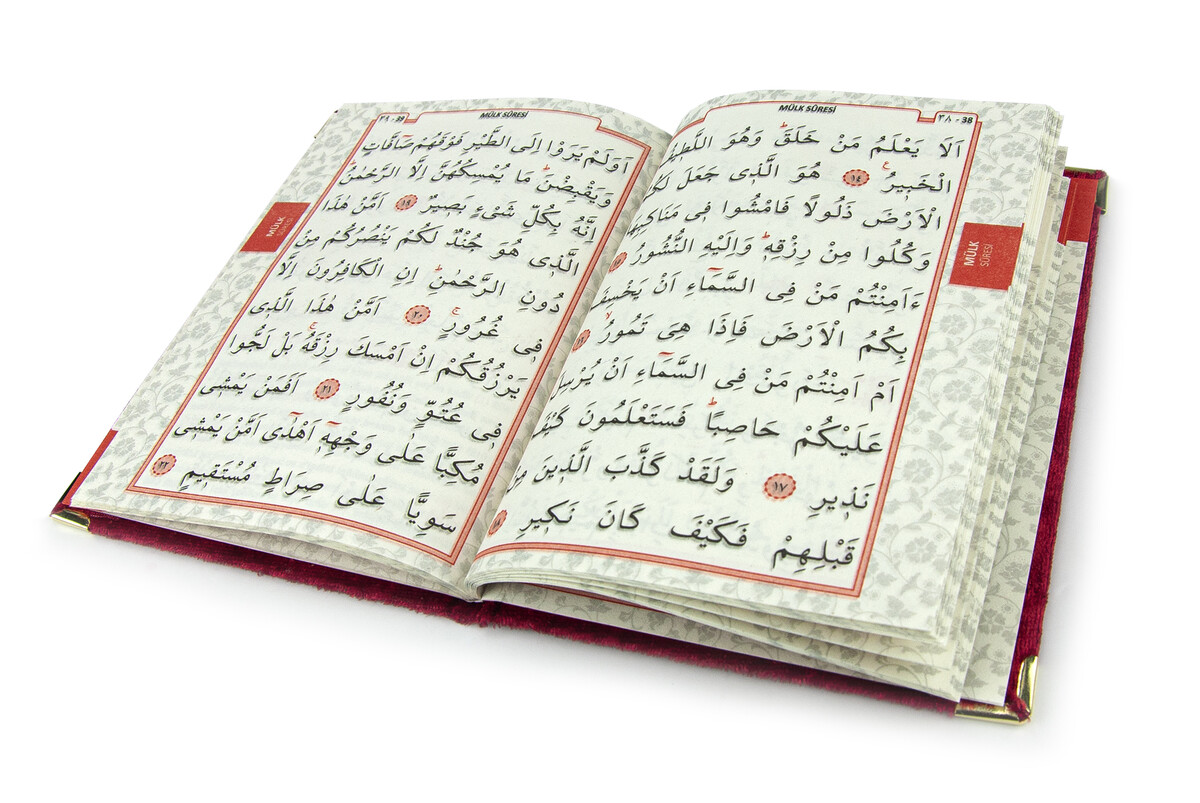 MÜLK SÛRESİ
٣٨ - 38
اَلَا يَعْلَمُ مَنْ خَلَقَۜ وَهُوَ اللَّط۪يفُ
الْخَب۪يرُ ۟ ﴿١٤﴾ هُوَ الَّذ۪ي جَعَلَ لَكُمُ
الْاَرْضَ ذَلُولًا فَامْشُوا ف۪ي مَنَاكِبِهَا
وَكُلُوا مِنْ رِزْقِه۪ۜ وَاِلَيْهِ النُّشُورُ
ءَاَمِنْتُمْ مَنْ فِي السَّمَٓاءِ اَنْ يَخْسِفَ
بِكُمُ الْاَرْضَ فَاِذَا هِيَ تَمُورُۙ
اَمْ اَمِنْتُمْ مَنْ فِي السَّمَٓاءِ اَنْ يُرْسِلَ
عَلَيْكُمْ حَاصِبًاۜ فَسَتَعْلَمُونَ كَيْفَ
نَذ۪يرِ ﴿١٧﴾ وَلَقَدْ كَذَّبَ الَّذ۪ينَ مِنْ
قَبْلِهِمْ فَكَيْفَ كَانَ نَك۪يرِ ﴿١٨﴾
MÜLK
SÛRESİ
MÜLK SÛRESİ
39
اَوَلَمْ يَرَوْا اِلَى الطَّيْرِ فَوْقَهُمْ صَٓافَّاتٍ
وَيَقْبِضْنَۜ مَا يُمْسِكُهُنَّ اِلَّا الرَّحْمٰنُۜ
اِنَّهُ بِكُلِّ شَيْءٍ بَص۪يرٌ ﴿١٩﴾ اَمَّنْ هٰذَا
الَّذ۪ي هُوَ جُنْدٌ لَكُمْ يَنْصُرُكُمْ مِنْ
دُونِ الرَّحْمٰنِۜ اِنِ الْكَافِرُونَ اِلَّا
ف۪ي غُرُورٍۚ ﴿٢٠﴾ اَمَّنْ هٰذَا الَّذ۪ي
يَرْزُقُكُمْ اِنْ اَمْسَكَ رِزْقَهُۚ بَلْ لَجُّوا
ف۪ي عُتُوٍّ وَنُفُورٍ ﴿٢١﴾ اَفَمَنْ يَمْش۪ي
مُكِبًّا عَلٰى وَجْهِه۪ٓ اَهْدٰٓى اَمَّنْ يَمْش۪ي
سَوِيًّا عَلٰى صِرَاطٍ مُسْتَق۪يمٍ ﴿٢٢﴾
MÜLK
SÛRESİ